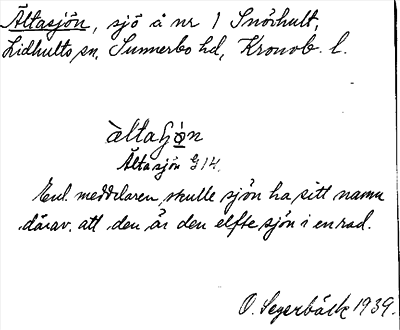 Ältasjön, sjö å nr 1 Snörhult,
Lidhults sn, Sunnerbo hd, Kronob. l.
àltaʃọ́n
Ältasjön G 14.
Enl. meddelaren skulle sjön ha sitt namn
därav, att den är den elfte sjön i en rad.
O. Segerbäck 1939.